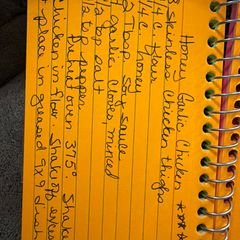 Honey Garlic Chicken ****
8 skinless chicken thighs
1/4 C flour
1/4 C. honey
2 Tbsp soy sauce
2 garlic cloves minced
1/2 tsp salt
1/8 tsp pepper
Preheat oven 375°. Shake
Chicken in flour. Shake off excess
place in greased 9x9 dish